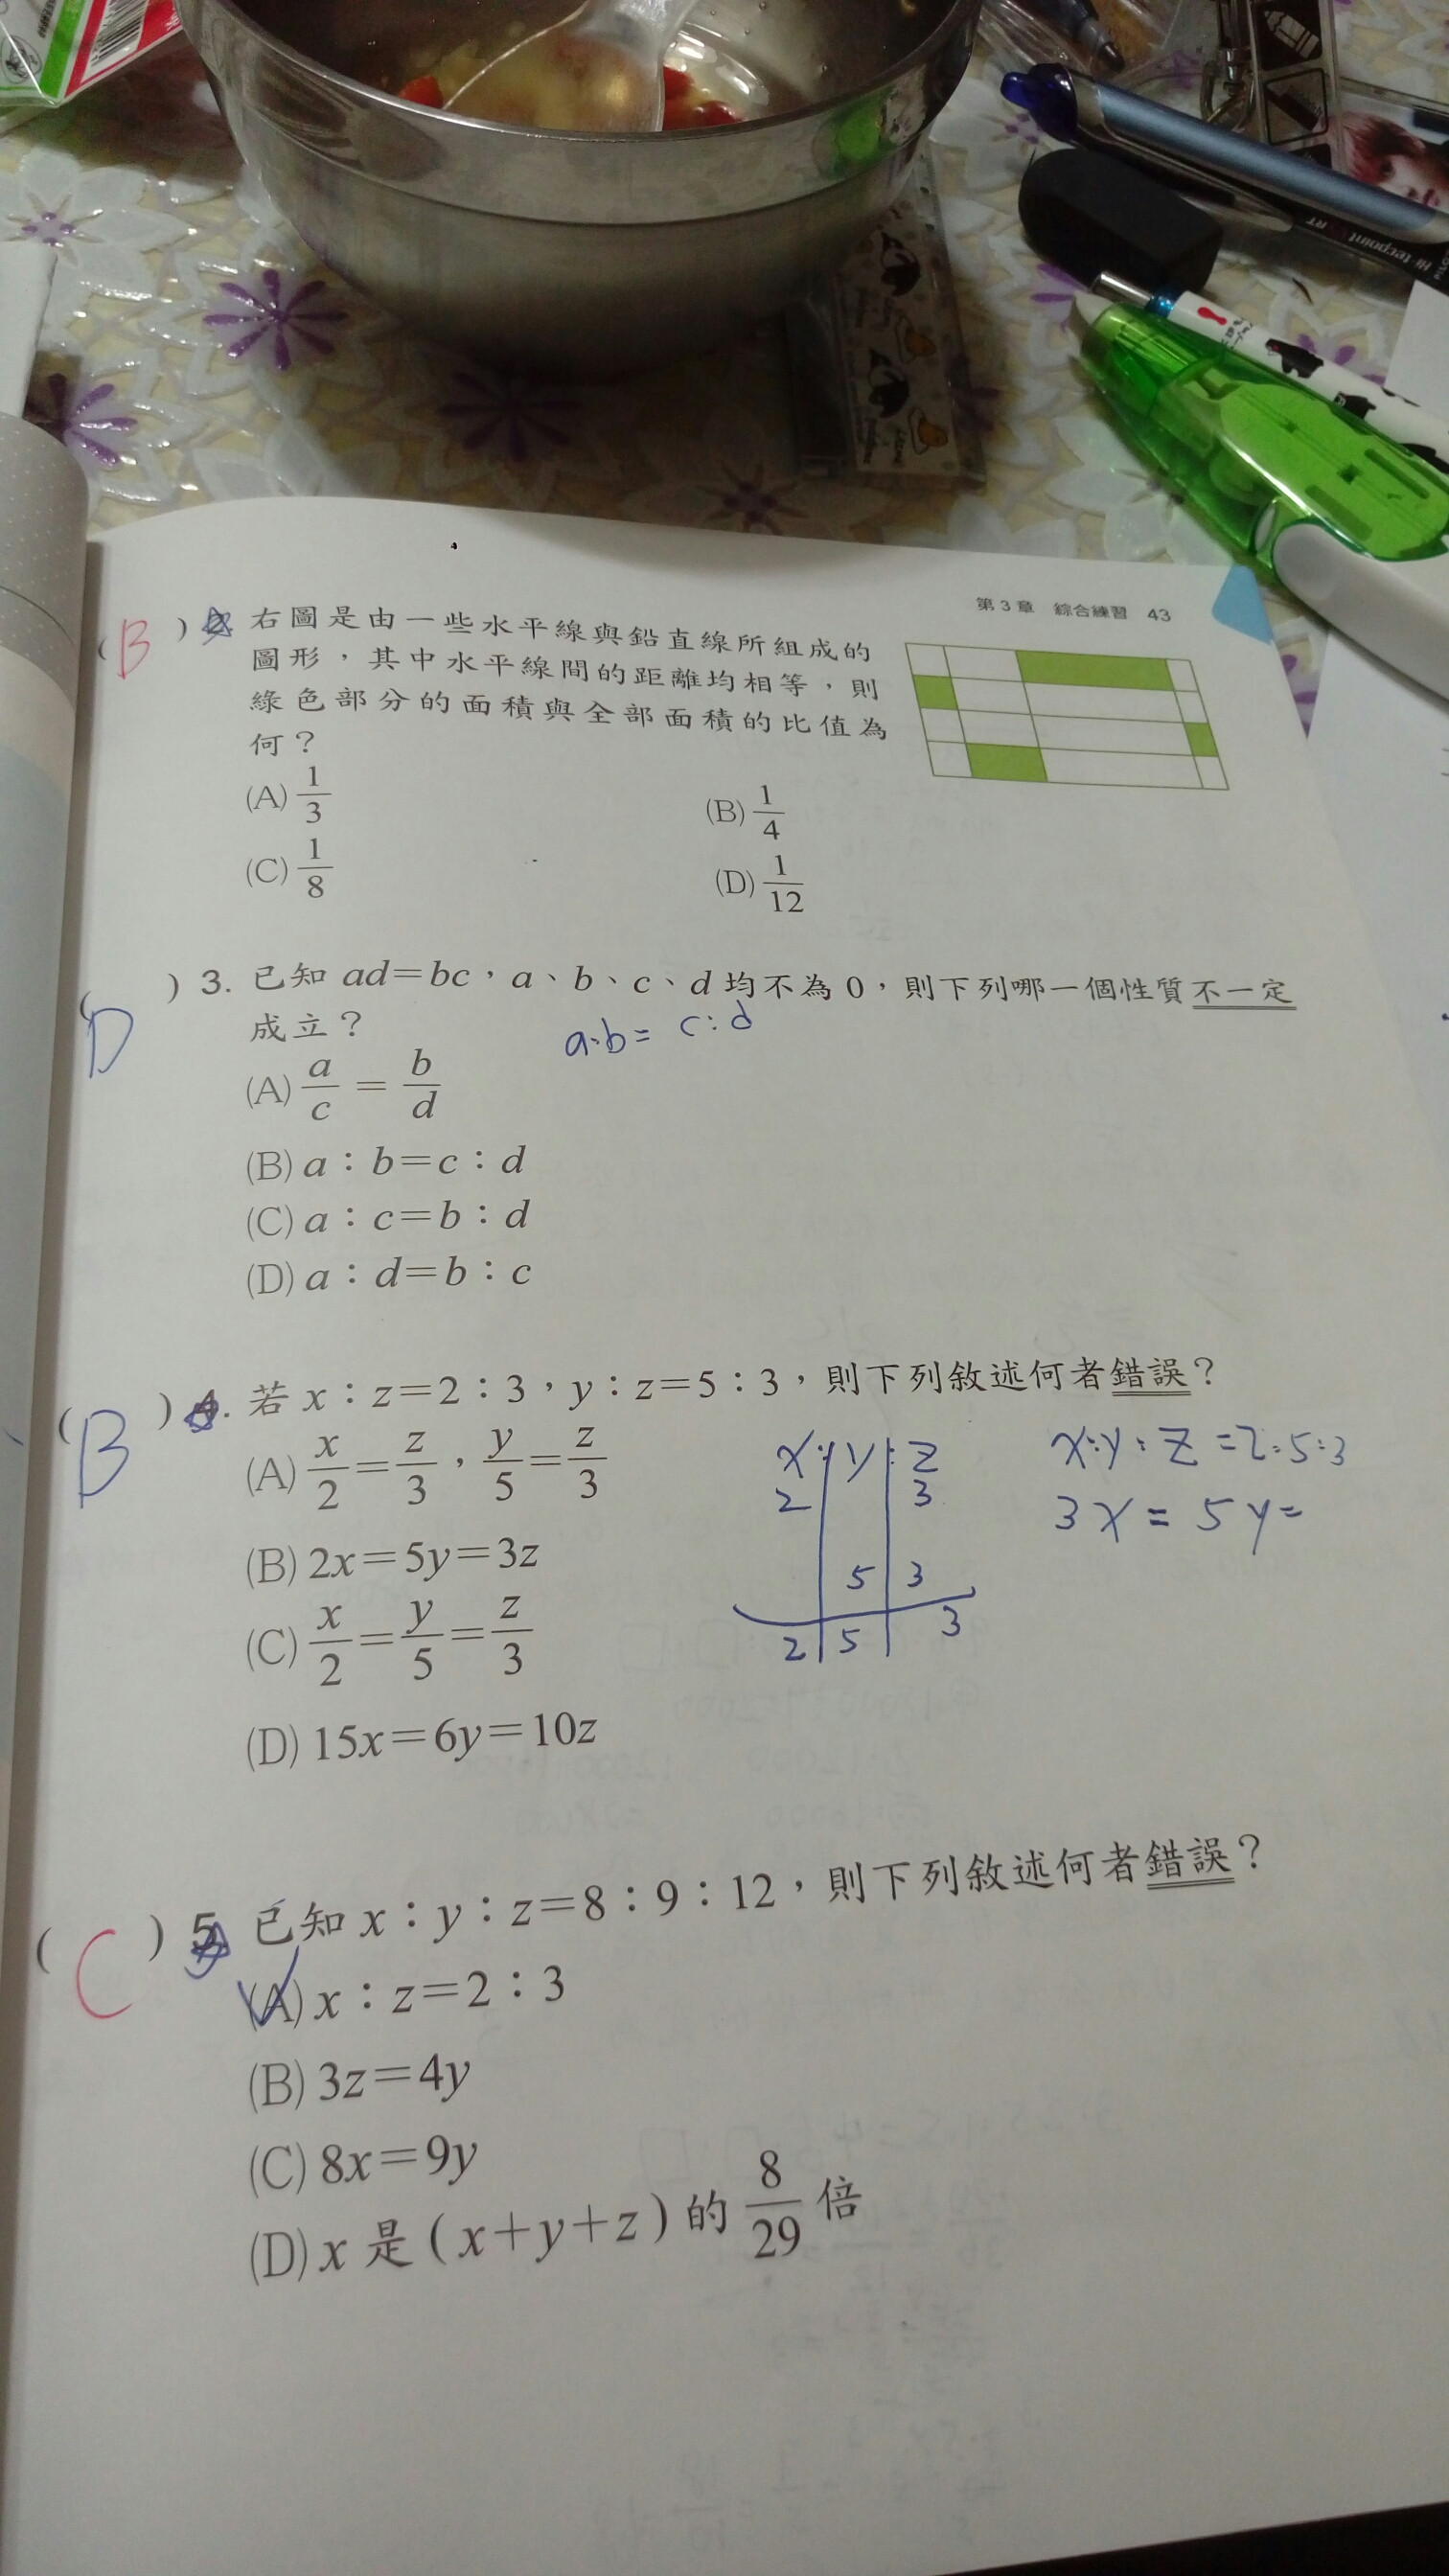 Hi-tecpoint
RT
第3章 綜合練習 43
( B ) 右圖是由一些水平線與鉛直線所組成的
圖形,其中水平線間的距離均相等,則
綠色部分的面積與全部面積的比值為
何?
(A) 1/3 (B) 1/4
(C) 1/8 (D) 1/12
( D ) 3. 已知 ad=bc,a、b、c、d 均不為 0,則下列哪一個性質不一定
成立?
a:b= c:d
(A) a/c = b/d
(B) a:b=c:d
(C) a:c=b:d
(D) a:d=b:c
( B ) 4. 若 x:z=2:3,y:z=5:3,則下列敘述何者錯誤?
(A) x/2=z/3,y/5=z/3
(B) 2x=5y=3z
(C) x/2=y/5=z/3
(D) 15x=6y=10z
x:y:z
2 3
5 3
2 5 3
x:y:z=2:5:3
3x=5y=
( C ) 5. 已知 x:y:z=8:9:12,則下列敘述何者錯誤?
(A) x:z=2:3
(B) 3z=4y
(C) 8x=9y
(D) x 是(x+y+z)的 8/29 倍